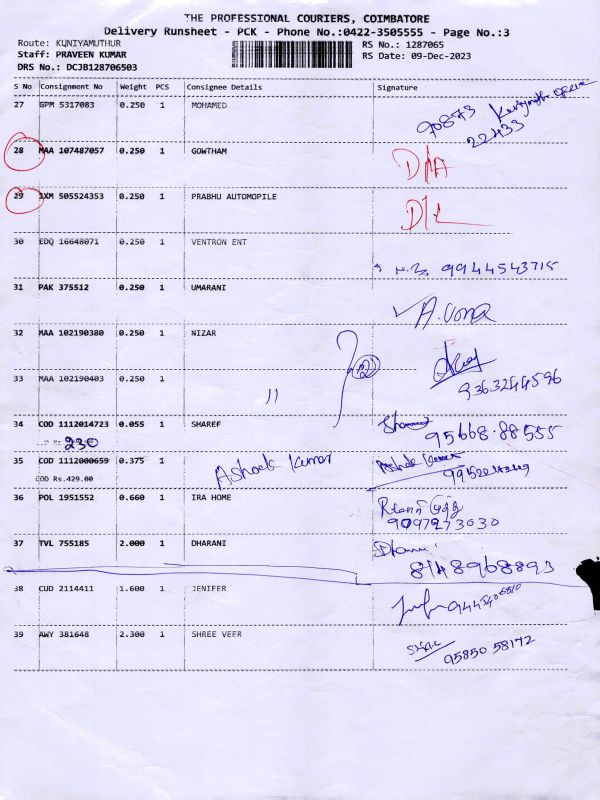 THE PROFESSIONAL COURIERS, COIMBATORE
Delivery Runsheet - PCK - Phone No.:0422-3505555 - Page No.:3
Route: KUNIYAMUTHUR
RS No.: 1287065
Staff: PRAVEEN KUMAR
RS Date: 09-Dec-2023
DRS No.: DCJB128706503
S No Consignment No Weight PCS Consignee Details Signature
27 GPM 5317083 0.250 1 MOHAMED
90873
22433
28 MAA 107487057 0.250 1 GOWTHAM D/A
29 IXM 505524353 0.250 1 PRABHU AUTOMOPILE D/L
30 EDQ 16648071 0.250 1 VENTRON ENT 9944543715
31 PAK 375512 0.250 1 UMARANI A.Uma
32 MAA 102190380 0.250 1 NIZAR
33 MAA 102190403 0.250 1 " 9363244596
34 COD 1112014723 0.055 1 SHAREF 95668.88555
230
35 COD 1112000659 0.375 1 Ashok Kumar Ashok Kumar
COD Rs.429.00
36 POL 1951552 0.660 1 IRA HOME
9097273030
37 TVL 755185 2.000 1 DHARANI Dharani
8148968893
38 CUD 2114411 1.600 1 JENIFER
39 AWY 381648 2.300 1 SHREE VEER
95850 58172